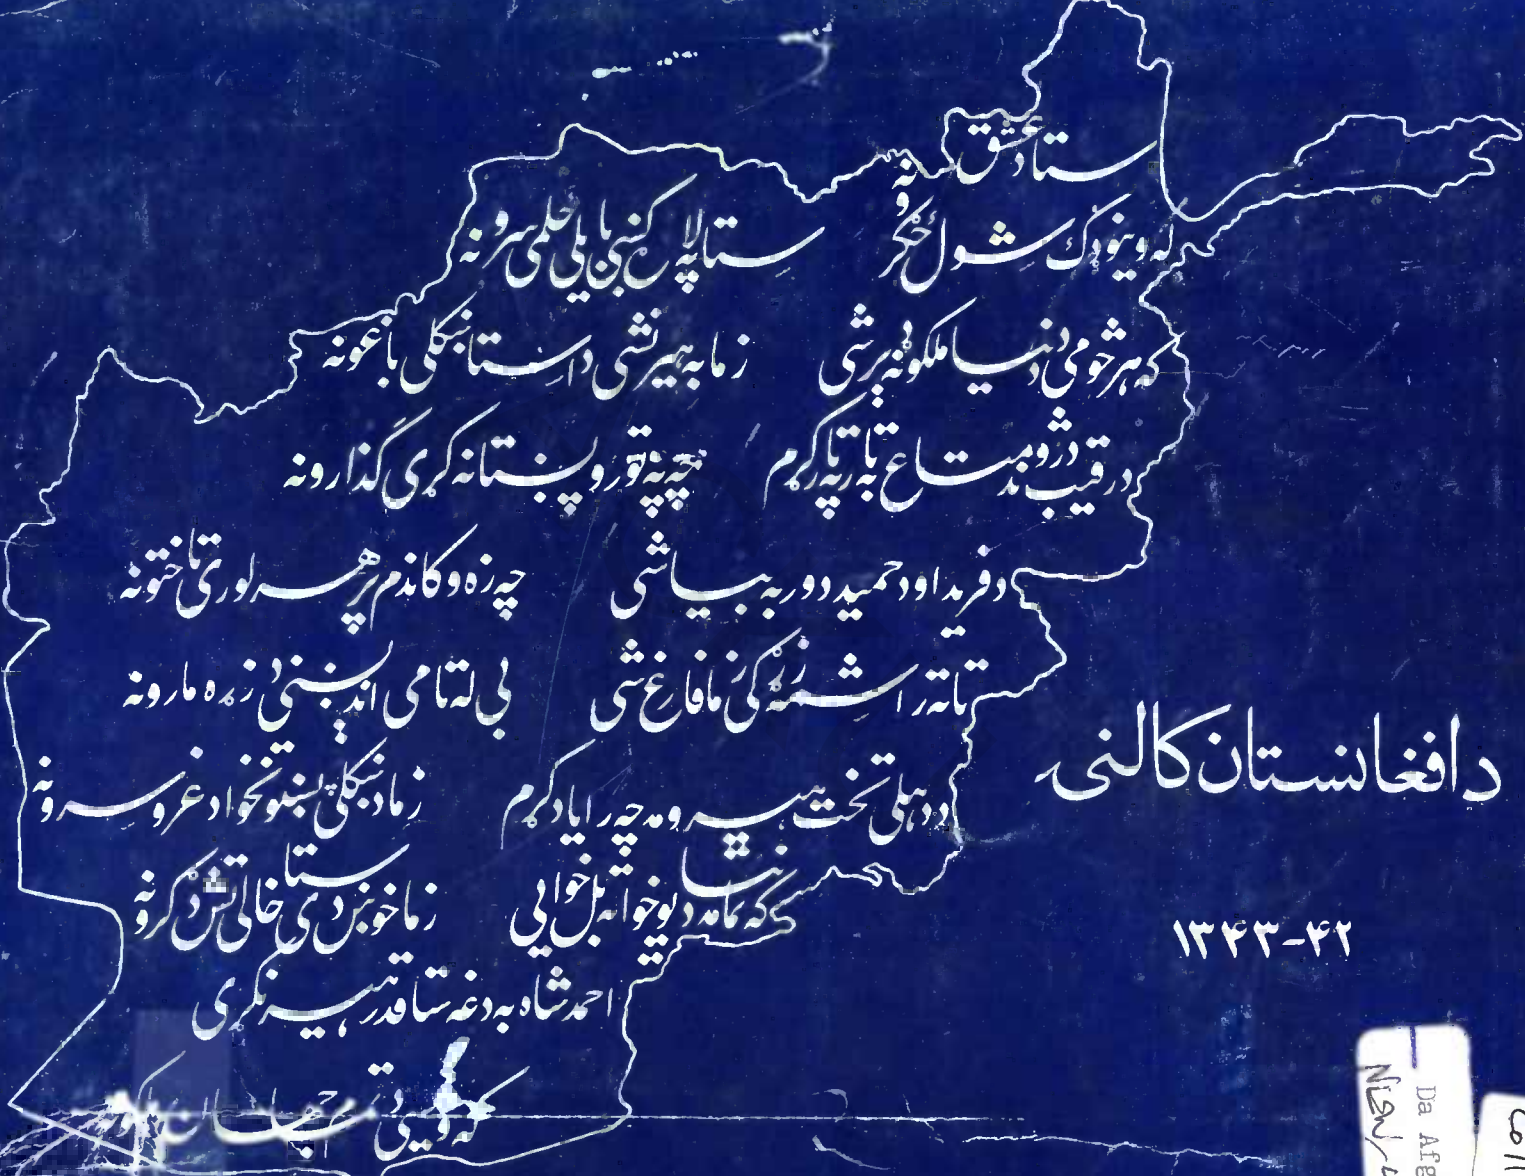 ستا د عشق
له وینو ډک شول ځګرونه ستا په لاره کښی بایلی ځلمی سرونه
که هر څومی د دنیا ملکونه ډېر شی زما به هیر نشی دا ستا ښکلی باغونه
د رقیب د ژوند متاع به تار په تار کړم چه په تورو پښتانه کړی ګذارونه
د فرید او د حمید دور به بیا شی چه زه وکاندم پر هر لوری تاختونه
تا ته راشمه زړګی زما فارغ شی بی له تا می اندېښنی د زړه مارونه
د دهلی تخت هیرومه چه را یاد کړم زما د ښکلی پښتونخوا د غرو سرونه
که تمامه دنیا یوخوا ته بل خوا یی زما خوښ دی ستا خالی تش ډګرونه
احمد شاه به دغه ستا قدر هیر نکړی
که ونیسی د جهان ملکونه
د افغانستان کالنۍ
۱۳۴۳-۴۲
Da Afg